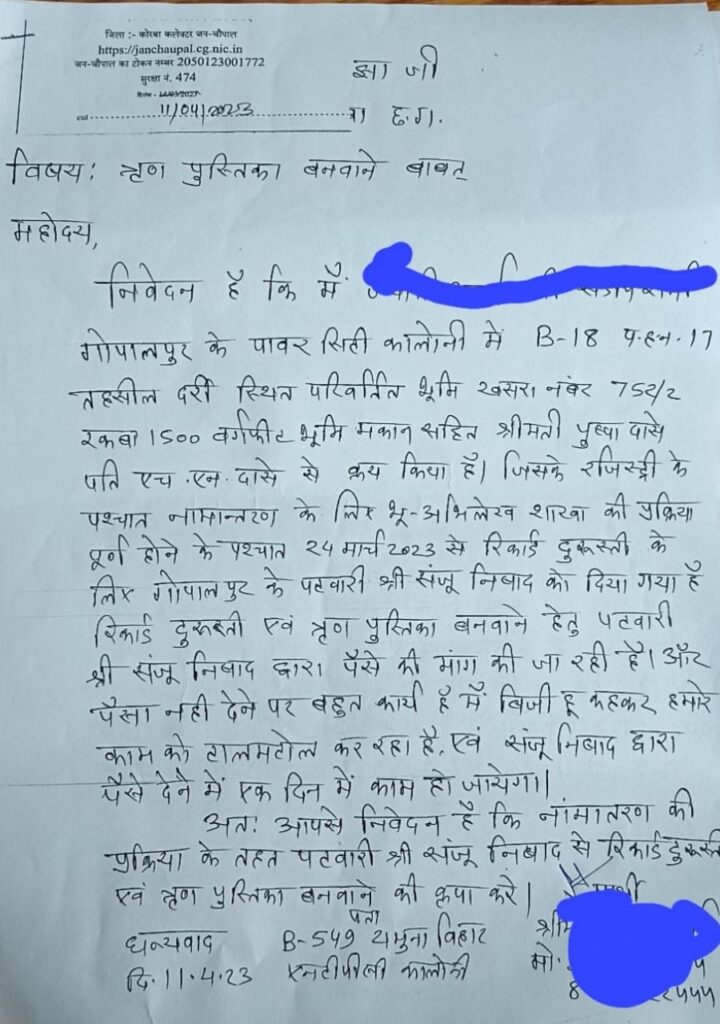 जिला :- कोरबा कलेक्टर जन-चौपाल
https://janchaupal.cg.nic.in
जन-चौपाल का टोकन नम्बर 2050123001772
सुरक्षा नं. 474
झा जी
11/04/2023
छ.ग.
विषय: ऋण पुस्तिका बनवाने बाबत्
महोदय,
निवेदन है कि मैं
गोपालपुर के पावर सिटी कालोनी में B-18 प.ह.न.17
तहसील दर्री स्थित परिवर्तित भूमि खसरा नंबर 752/2
रकबा 1500 वर्गफीट भूमि मकान सहित श्रीमती पुष्पा दासे
पति एच.एन.दासे से क्रय किया है। जिसके रजिस्ट्री के
पश्चात नामान्तरण के लिए भू-अभिलेख शाखा की प्रक्रिया
पूर्ण होने के पश्चात 24 मार्च 2023 से रिकार्ड दुरूस्ती के
लिए गोपालपुर के पटवारी श्री संजू निषाद को दिया गया है
रिकार्ड दुरूस्ती एवं ऋण पुस्तिका बनवाने हेतु पटवारी
श्री संजू निषाद द्वारा पैसे की मांग की जा रही है। और
पैसा नही देने पर बहुत कार्य है मैं बिजी हू कहकर हमारे
काम को टालमटोल कर रहा है, एवं संजू निषाद द्वारा
पैसे देने में एक दिन में काम हो जायेगा।
अतः आपसे निवेदन है कि नांमातरण की
प्रक्रिया के तहत पटवारी श्री संजू निषाद से रिकार्ड दुरूस्ती
एवं ऋण पुस्तिका बनवाने की कृपा करे।
पता
धन्यवाद B-549 यमुना विहार
दि.11.4.23 एनटीपीसी कालोनी
मो.
8